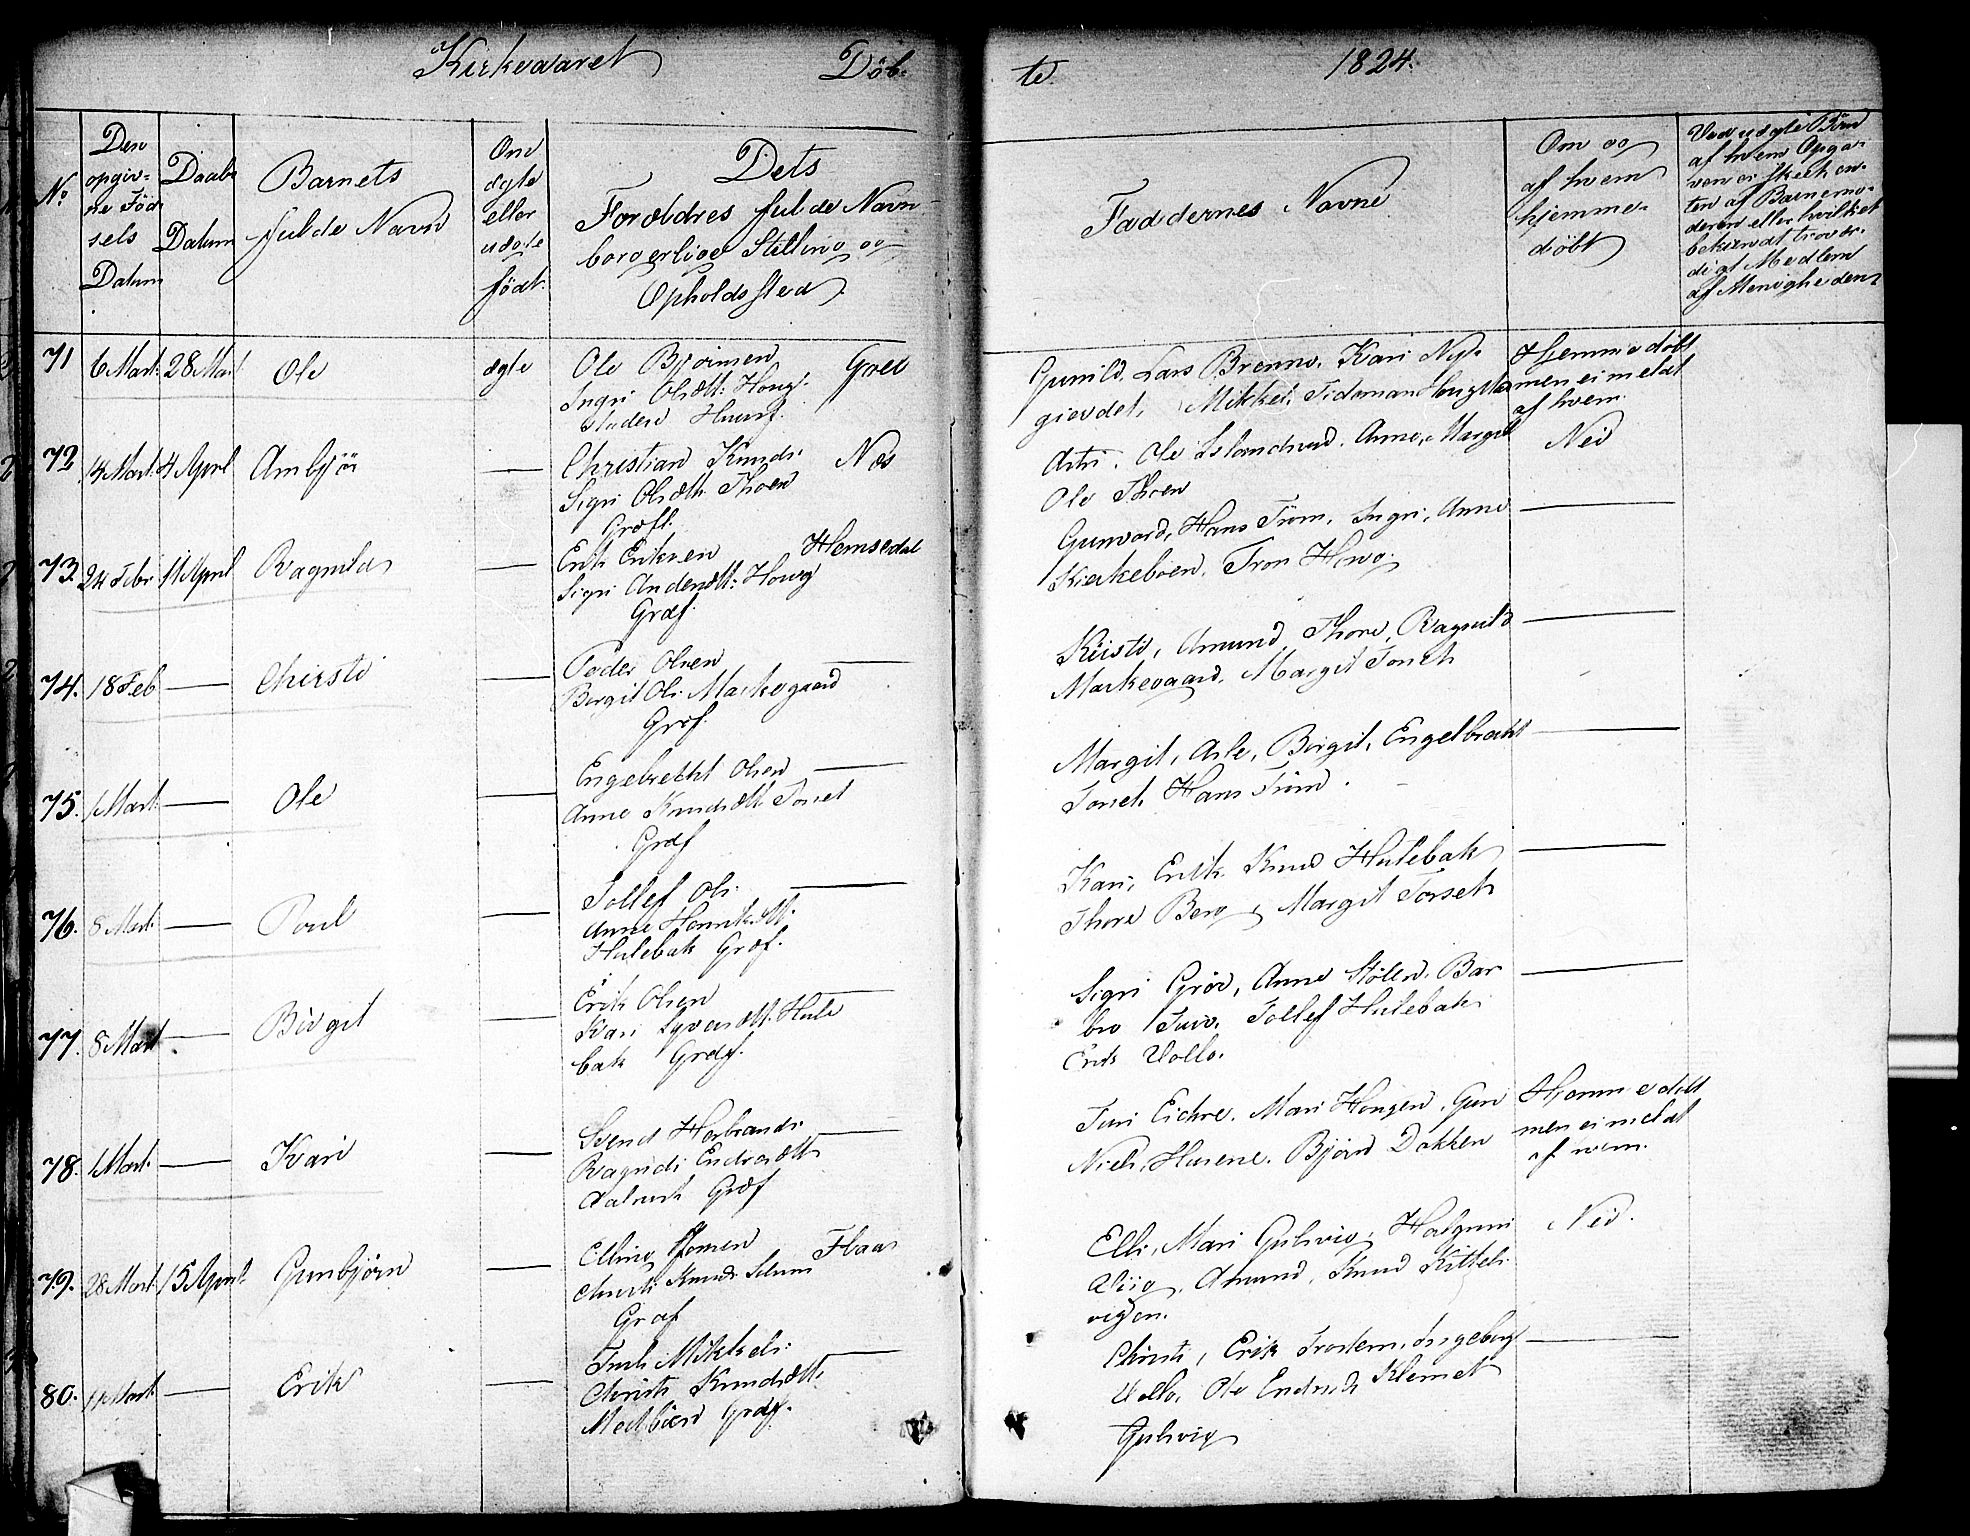 Kirkeaaret Döb-
te 1824.
No
Den
opgiv-
ne Föd
sels
Datum
Daabs
Datum
Barnets
fulde Navn
Om
ægte
eller
uægte
födt.
Dets
Forældres fulde Navn
borgerlige Stilling og
Opholdssted
Faddernes Navne
Om og
af hvem
hjemme-
döbt
Ved uægte Börn
af hvem Opga-
ven er skeet en-
ten af Barnemo-
deren eller hvilket
bekiendt trovær-
digt Medlem
af Menigheden
71 6 Mart. 28 Mart Ole ægte Ole Björnsen Goel
Ingri Olsdtt. Houg-
staden Huusf.
Gunild, Lars Brenno, Kari Nyt-
giærdet, Mikkel, Tideman Hougsta
Hjemmedöbt
men ei meldt
af hvem.
72 14 Mart. 4 April Ambjör — Christian Knuds. Næs
Sigri Olsdtt. Thoen
Græfl.
Ole Islandrud. Anne, Margit
Ole Thoen
Nei
73. 24 Febr 11 April Ragnild — Erik Eriksen Hemsedal
Sigri Andersdtt: Houg
Græf.
Gunvord, Hans Tüm, Ingri, Anne
Kirkeboen, Tron Houg. —
74. 18 Feb — Chirsti — Peder Olsen —
Birgit Ols. Markegaard
Græf.
Kirsti, Amund, Thore, Ragnild
Markegaard, Margit Torset —
75. 1 Mart — Ole — Engebrecht Olsen —
Anne Knudsdtt Torset
Græf
Margit, Asle, Birgit, Engelbrecht
Torset, Hans Tüm. —
76. 8 Mart. — Poul — Tollef Ols. —
Anne Henriksdtt.
Hulebak Græf.
Kari, Erik, Knud Hulebak
Thore Berg, Margit Torset —
77. 8 Mart — Birgit — Erik Olsen —
Kari Syversdtt. Hule
bak Græf.
Sigri Gröv, Anne Stölen, Bar
bro Tuv, Tollef Hulebak
Erik Ulsto. —
78. 1 Mart. — Kari — Svend Herbrands. —
Ragndi Endresdtt
Aalrust Græf
Turi Eickre, Mari Hougen, Guri
Niels, Husene, Björn Dokken
Hjemmedöbt
men ei meldt
af hvem.
79. 28 Mart. 15 April. Gunbjörn — Elling Flaa
Christi Knuds.
Græf
Elli, Mari Gulsvig, Halgrim
Viig, Amund, Knud Kittels
vigen.
Nei.
80. 11 Mart — Erik — Mikkels. —
Christi Knudsdtt.
Græf.
Christi, Erik Trostem, Ingeborg
Ole Endresd. Klemet
Gulsvig —